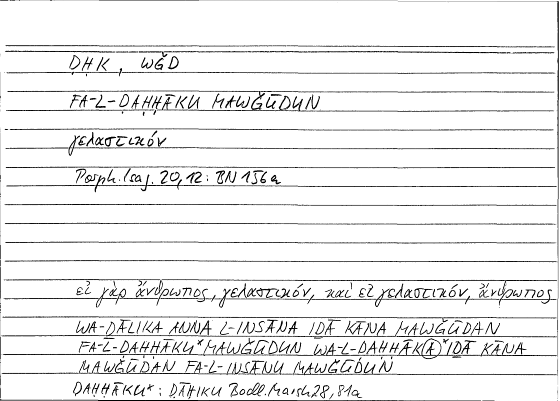 ḌḤK, WǦD
FA-L-ḌAḤḤĀKU MAWǦŪDUN
γελαστικόν
Porph. Isag. 20,12: BN 156a
εἰ γὰρ ἄνθρωπος, γελαστικόν, καὶ εἰ γελαστικόν, ἄνθρωπος
WA-ḎĀLIKA ANNA L-INSĀNA IḎĀ KĀNA MAWǦŪDAN
FA-L-ḌAḤḤĀKU* MAWǦŪDUN WA-L-ḌAḤḤĀK(A)* IḎĀ KĀNA
MAWǦŪDAN FA-L-INSĀNU MAWǦŪDUN
ḌAḤḤĀKU*: ḌĀḤIKU Bodl. Marsh 28, 81a